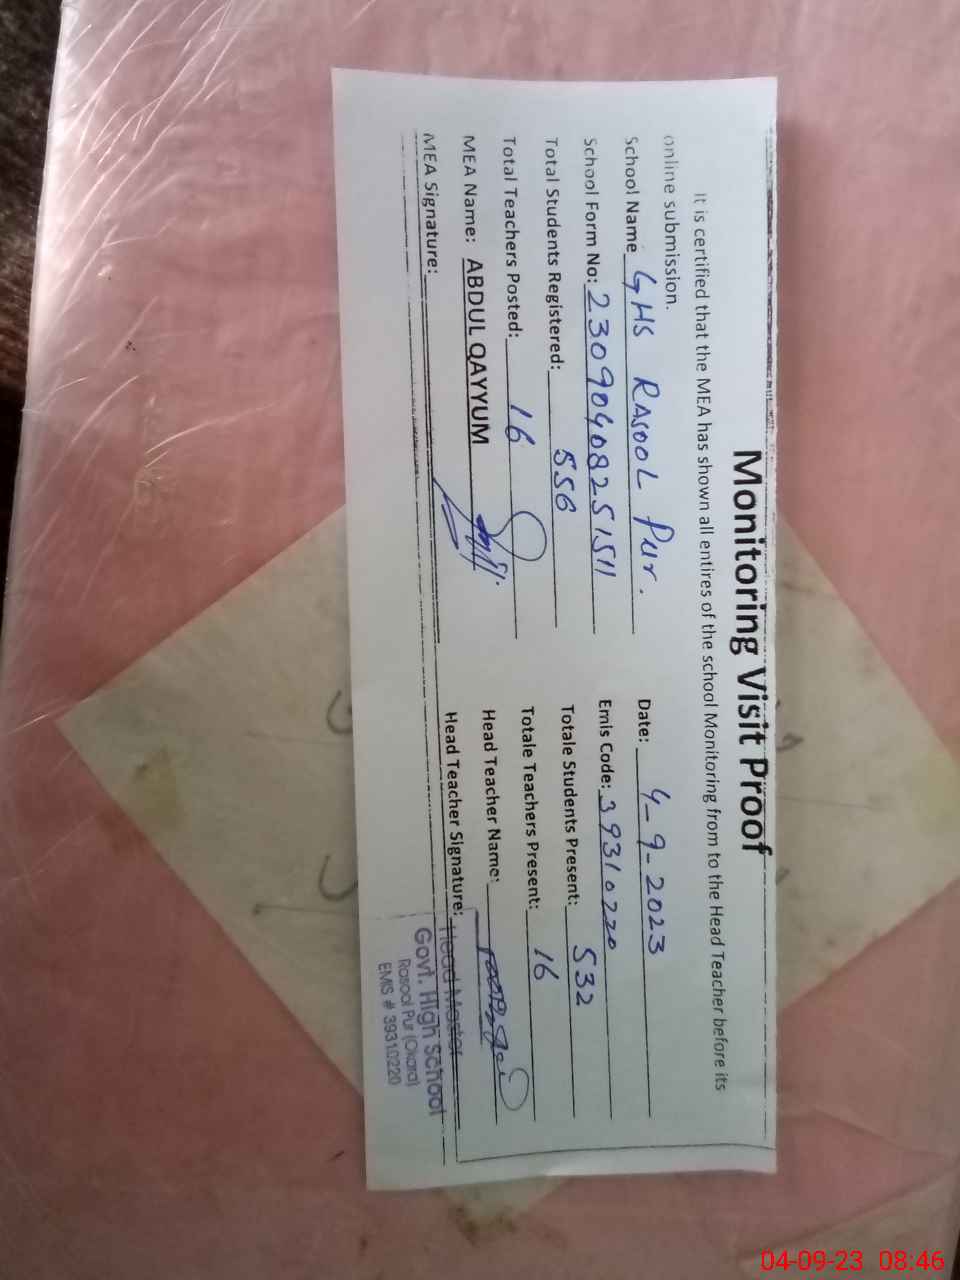 Monitoring Visit Proof
It is certified that the MEA has shown all entires of the school Monitoring from to the Head Teacher before its
online submission.
School Name GHS RASOOL Pur. Date: 4-9-2023
School Form No: 23090408251511 Emis Code: 39310220
Total Students Registered: 556 Totale Students Present: 532
Total Teachers Posted: 16 Totale Teachers Present: 16
MEA Name: ABDUL QAYYUM Head Teacher Name:
MEA Signature: Head Teacher Signature:
Head Master
Govt. High School
Rasool Pur (Okara)
EMIS # 39310220
04-09-23 08:46